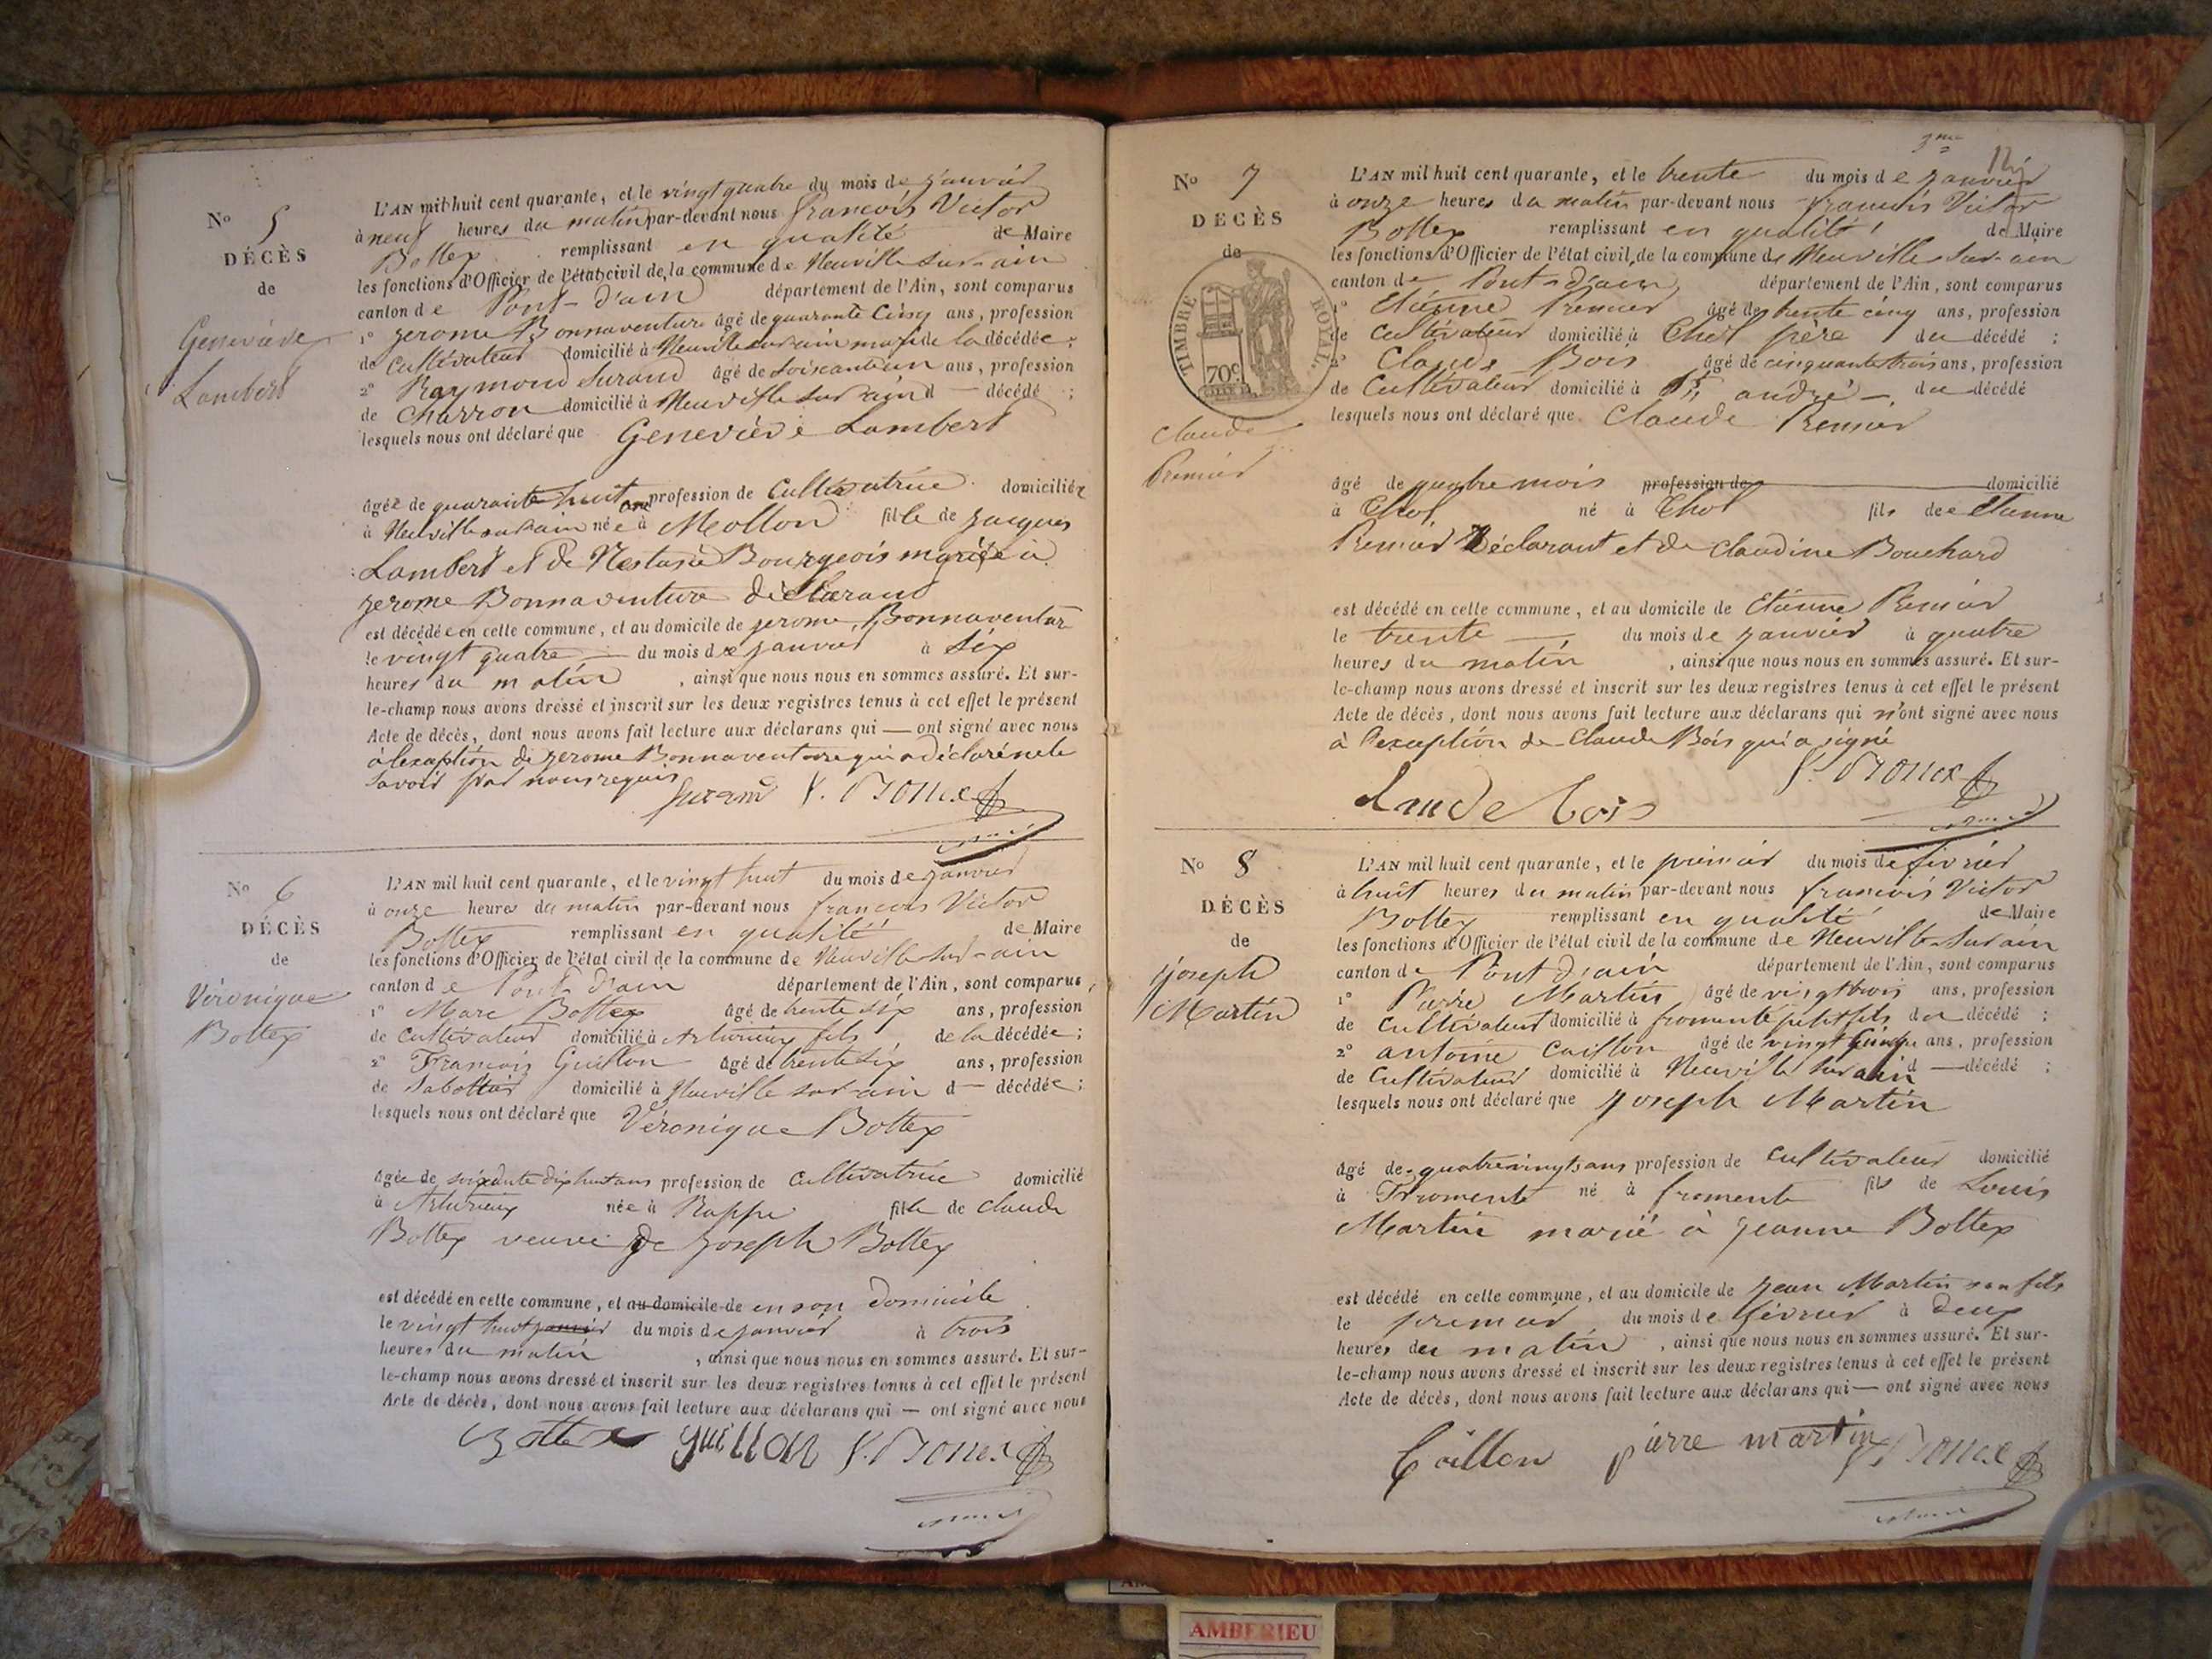 No 5
DÉCÈS
de
Geneviève
Lambert
L'AN mil huit cent quarante, et le vingt quatre du mois de janvier
à neuf heures du matin par-devant nous françois Victor
Bottex remplissant en qualité de Maire
les fonctions d'Officier de l'état civil de la commune de Neuville sur-ain
canton de Pont-d'ain département de l'Ain, sont comparus
1° jerome Bonnaventure âgé de quarante cinq ans, profession
de cultivateur domicilié à Neuville sur ain mari de la décédée;
2° Raymond Surand âgé de soixante un ans, profession
de charron domicilié à Neuville sur ain d — décédé;
lesquels nous ont déclaré que Geneviève Lambert
âgée de quarante huit ans profession de cultivatrice domiciliée
à Neuville sur ain née à Mollon fille de jacques
Lambert et de Nestasie Bourgeois mariée à
jerome Bonnaventure déclarant
est décédée en cette commune, et au domicile de jerome Bonnaventure
le vingt quatre — du mois de janvier à six
heures du matin, ainsi que nous nous en sommes assuré. Et sur-
le-champ nous avons dressé et inscrit sur les deux registres tenus à cet effet le présent
Acte de décès, dont nous avons fait lecture aux déclarans qui — ont signé avec nous
à l'exception de jerome Bonnaventure qui a déclaré ne le
savoir par nous requis
Surand
No 6
DÉCÈS
de
Véronique
Bottex
L'AN mil huit cent quarante, et le vingt huit du mois de janvier
à onze heures du matin par-devant nous françois Victor
Bottex remplissant en qualité de Maire
les fonctions d'Officier de l'état civil de la commune de Neuville-sur-ain
canton de Pont d'ain département de l'Ain, sont comparus,
1° Marc Bottex âgé de trente six ans, profession
de cultivateur domicilié à Arturieux fils de la décédée;
2° François Guillon âgé de trente six ans, profession
de Sabottier domicilié à Neuville sur-ain d — décédée;
lesquels nous ont déclaré que Véronique Bottex
âgée de soixante dix huit ans profession de cultivatrice domicilié
à Arturieux née à Rappe fille de claude
Bottex veuve de joseph Bottex
est décédé en cette commune, et au domicile de en son domicile
le vingt huit janvier du mois de janvier à trois
heures du matin, ainsi que nous nous en sommes assuré. Et sur-
le-champ nous avons dressé et inscrit sur les deux registres tenus à cet effet le présent
Acte de décès, dont nous avons fait lecture aux déclarans qui — ont signé avec nous
Bottex guillon
3me
No 7
DÉCÈS
de
TIMBRE ROYAL.
70c.
claude
Premier
L'AN mil huit cent quarante, et le trente du mois de janvier
à onze heures du matin par-devant nous françois Victor
Bottex remplissant en qualité de Maire
les fonctions d'Officier de l'état civil de la commune de Neuville-sur-ain
canton de Pont-d'ain département de l'Ain, sont comparus
1° Etienne Premier âgé de trente cinq ans, profession
de cultivateur domicilié à Thol père du décédé;
2° Claude Bois âgé de cinquante trois ans, profession
de cultivateur domicilié à St andré —. du décédé
lesquels nous ont déclaré que Claude Premier
âgé de quatre mois profession de domicilié
à Thol né à Thol fils de Etienne
Premier Déclarant et de claudine Bouchard
est décédé en cette commune, et au domicile de Etienne Premier
le trente — du mois de janvier à quatre
heures du matin, ainsi que nous nous en sommes assuré. Et sur-
le-champ nous avons dressé et inscrit sur les deux registres tenus à cet effet le présent
Acte de décès, dont nous avons fait lecture aux déclarans qui n'ont signé avec nous
à l'exception de Claude Bois qui a signé
claude bois
No 8
DÉCÈS
de
joseph
Martin
L'AN mil huit cent quarante, et le premier du mois de fevrier
à huit heures du matin par-devant nous francois Victor
Bottex remplissant en qualité de Maire
les fonctions d'Officier de l'état civil de la commune de Neuville-sur ain
canton de Pont d'ain département de l'Ain, sont comparus
1° Pierre Martin âgé de vingt trois ans, profession
de cultivateur domicilié à fromente petit fils du décédé;
2° antoine Caillon âgé de vingt ans, profession
de cultivateur domicilié à Neuville sur ain d — décédé;
lesquels nous ont déclaré que joseph Martin
âgé de quatre vingts ans profession de cultivateur domicilié
à Fromente né à fromente fils de Louis
Martin marié à jeanne Bottex
est décédé en cette commune, et au domicile de jean Martin son fils
le premier du mois de février à deux
heures du matin, ainsi que nous nous en sommes assuré. Et sur-
le-champ nous avons dressé et inscrit sur les deux registres tenus à cet effet le présent
Acte de décès, dont nous avons fait lecture aux déclarans qui — ont signé avec nous
Caillon pierre martin
AMBERIEU